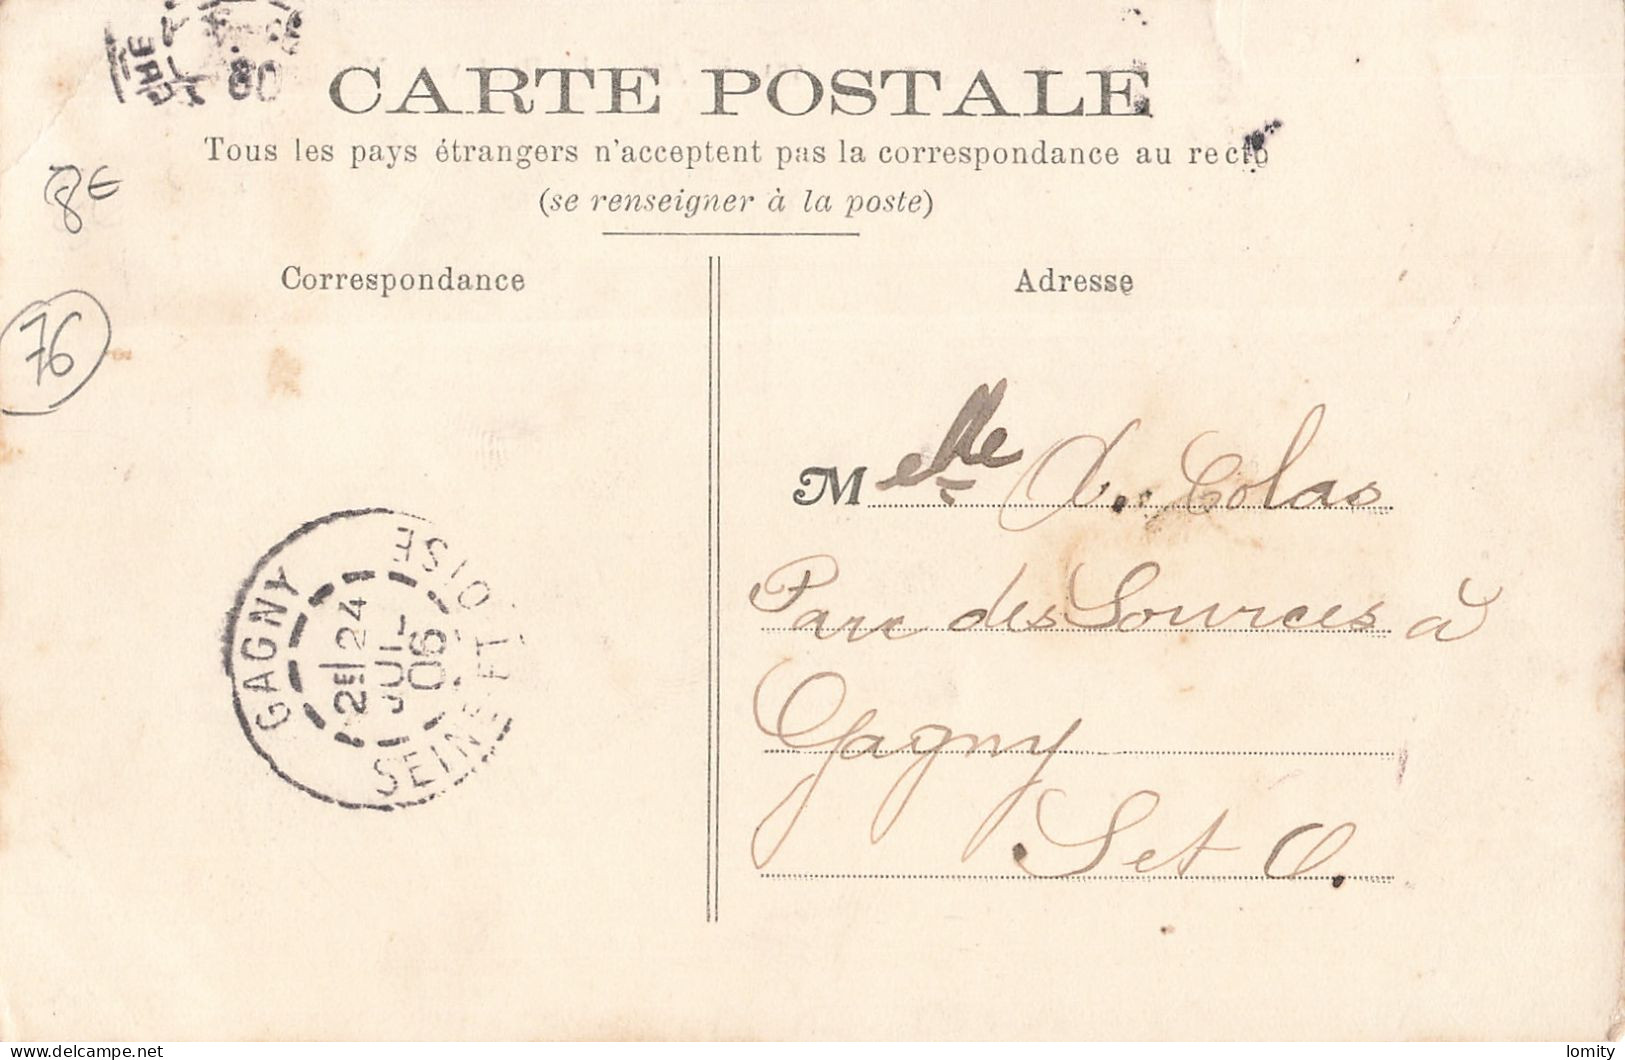 CARTE POSTALE
Tous les pays étrangers n'acceptent pas la correspondance au recto
(se renseigner à la poste)
8€
76
Correspondance
Adresse
Melle X. Colas
Parc des Sources à
Gagny
S et O.
GAGNY
2E 24
JUIL
06
SEINE ET OISE
delcampe.net
lomity